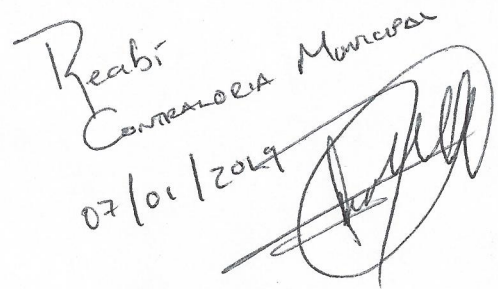 Recibí
Contraloria Municipal
07/01/2019